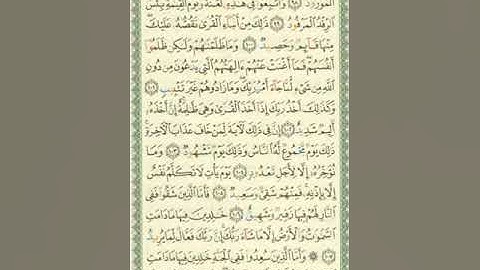 الْمَوْرُودُ ۝٩٨ وَأُتْبِعُوا فِي هَٰذِهِ لَعْنَةً وَيَوْمَ الْقِيَامَةِ بِئْسَ
الرِّفْدُ الْمَرْفُودُ ۝٩٩ ذَٰلِكَ مِنْ أَنبَاءِ الْقُرَىٰ نَقُصُّهُ عَلَيْكَ
مِنْهَا قَائِمٌ وَحَصِيدٌ ۝١٠٠ وَمَا ظَلَمْنَاهُمْ وَلَٰكِن ظَلَمُوا
أَنفُسَهُمْ فَمَا أَغْنَتْ عَنْهُمْ آلِهَتُهُمُ الَّتِي يَدْعُونَ مِن دُونِ
اللَّهِ مِن شَيْءٍ لَّمَّا جَاءَ أَمْرُ رَبِّكَ وَمَا زَادُوهُمْ غَيْرَ تَتْبِيبٍ ۝١٠١
وَكَذَٰلِكَ أَخْذُ رَبِّكَ إِذَا أَخَذَ الْقُرَىٰ وَهِيَ ظَالِمَةٌ إِنَّ أَخْذَهُ
أَلِيمٌ شَدِيدٌ ۝١٠٢ إِنَّ فِي ذَٰلِكَ لَآيَةً لِّمَنْ خَافَ عَذَابَ الْآخِرَةِ
ذَٰلِكَ يَوْمٌ مَّجْمُوعٌ لَّهُ النَّاسُ وَذَٰلِكَ يَوْمٌ مَّشْهُودٌ ۝١٠٣ وَمَا
نُؤَخِّرُهُ إِلَّا لِأَجَلٍ مَّعْدُودٍ ۝١٠٤ يَوْمَ يَأْتِ لَا تَكَلَّمُ نَفْسٌ
إِلَّا بِإِذْنِهِ فَمِنْهُمْ شَقِيٌّ وَسَعِيدٌ ۝١٠٥ فَأَمَّا الَّذِينَ شَقُوا فَفِي
النَّارِ لَهُمْ فِيهَا زَفِيرٌ وَشَهِيقٌ ۝١٠٦ خَالِدِينَ فِيهَا مَا دَامَتِ
السَّمَاوَاتُ وَالْأَرْضُ إِلَّا مَا شَاءَ رَبُّكَ إِنَّ رَبَّكَ فَعَّالٌ لِّمَا يُرِيدُ
۝١٠٧ ۞ وَأَمَّا الَّذِينَ سُعِدُوا فَفِي الْجَنَّةِ خَالِدِينَ فِيهَا مَا دَامَتِ